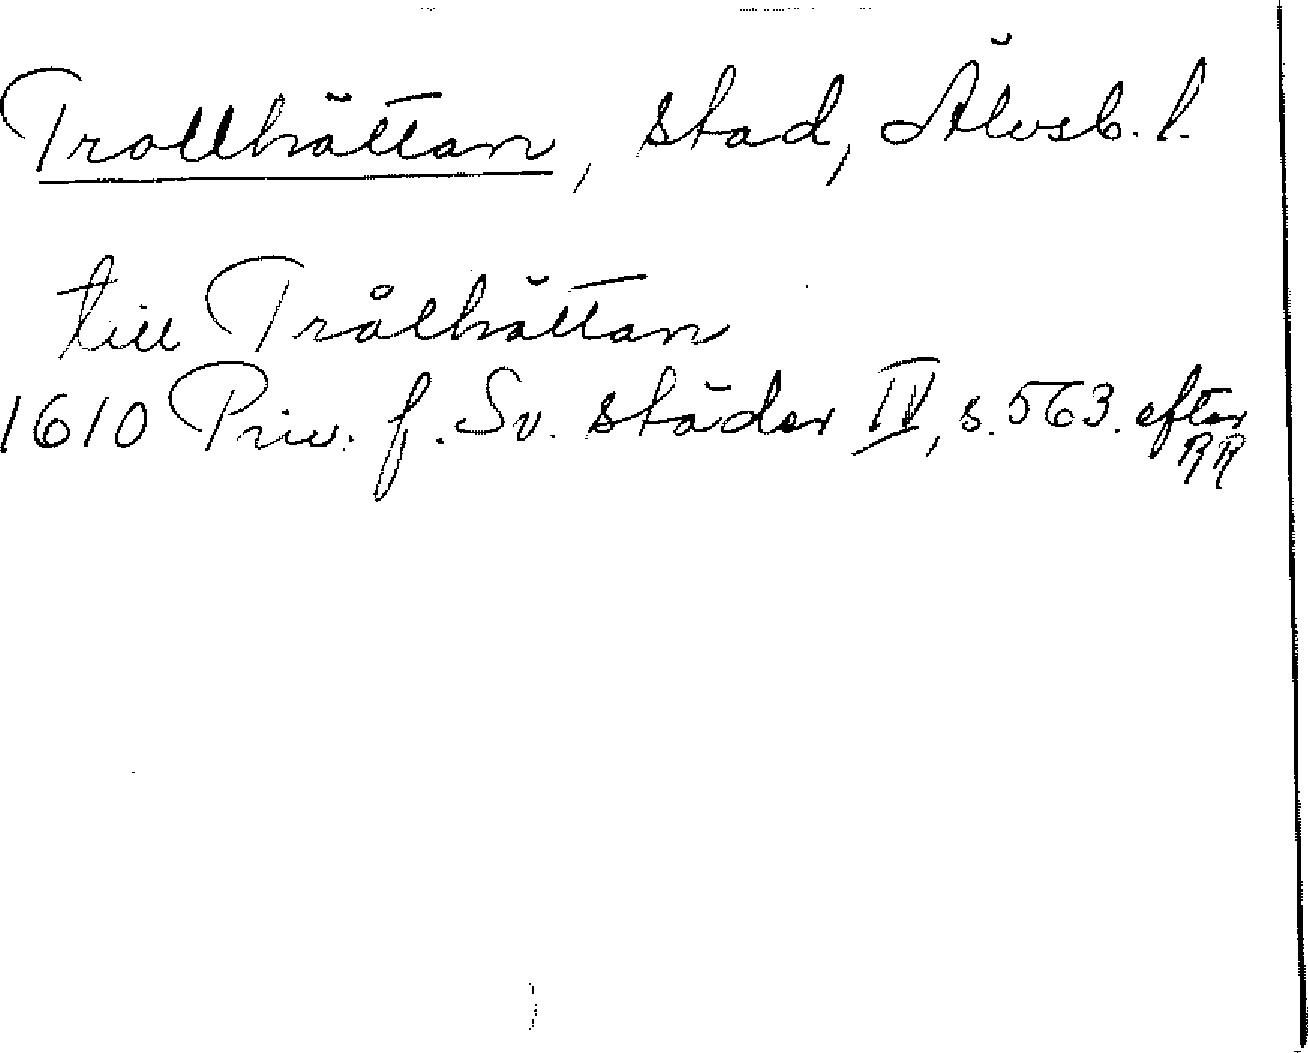 Trollhättan, stad, Älvsb. l.
till Trålhättan
1610 Priv. f. Sv. städer IV, s. 563. efter
RR